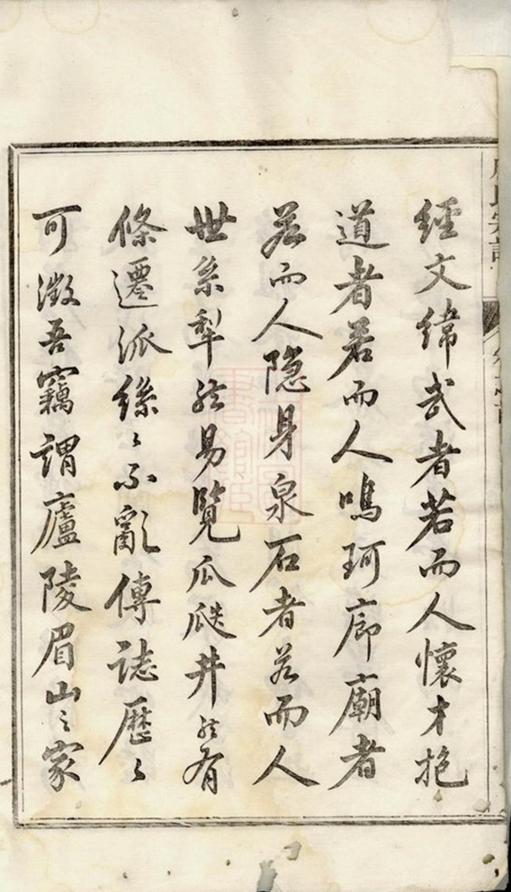 經文緯武者若而人懷才抱
道者若而人鳴珂廊廟者
若而人隐身泉石者若而人
世系犁然易覽瓜瓞井然有
條遷派綿〻不亂傳誌歷〻
可徵吾竊謂廬陵眉山之家